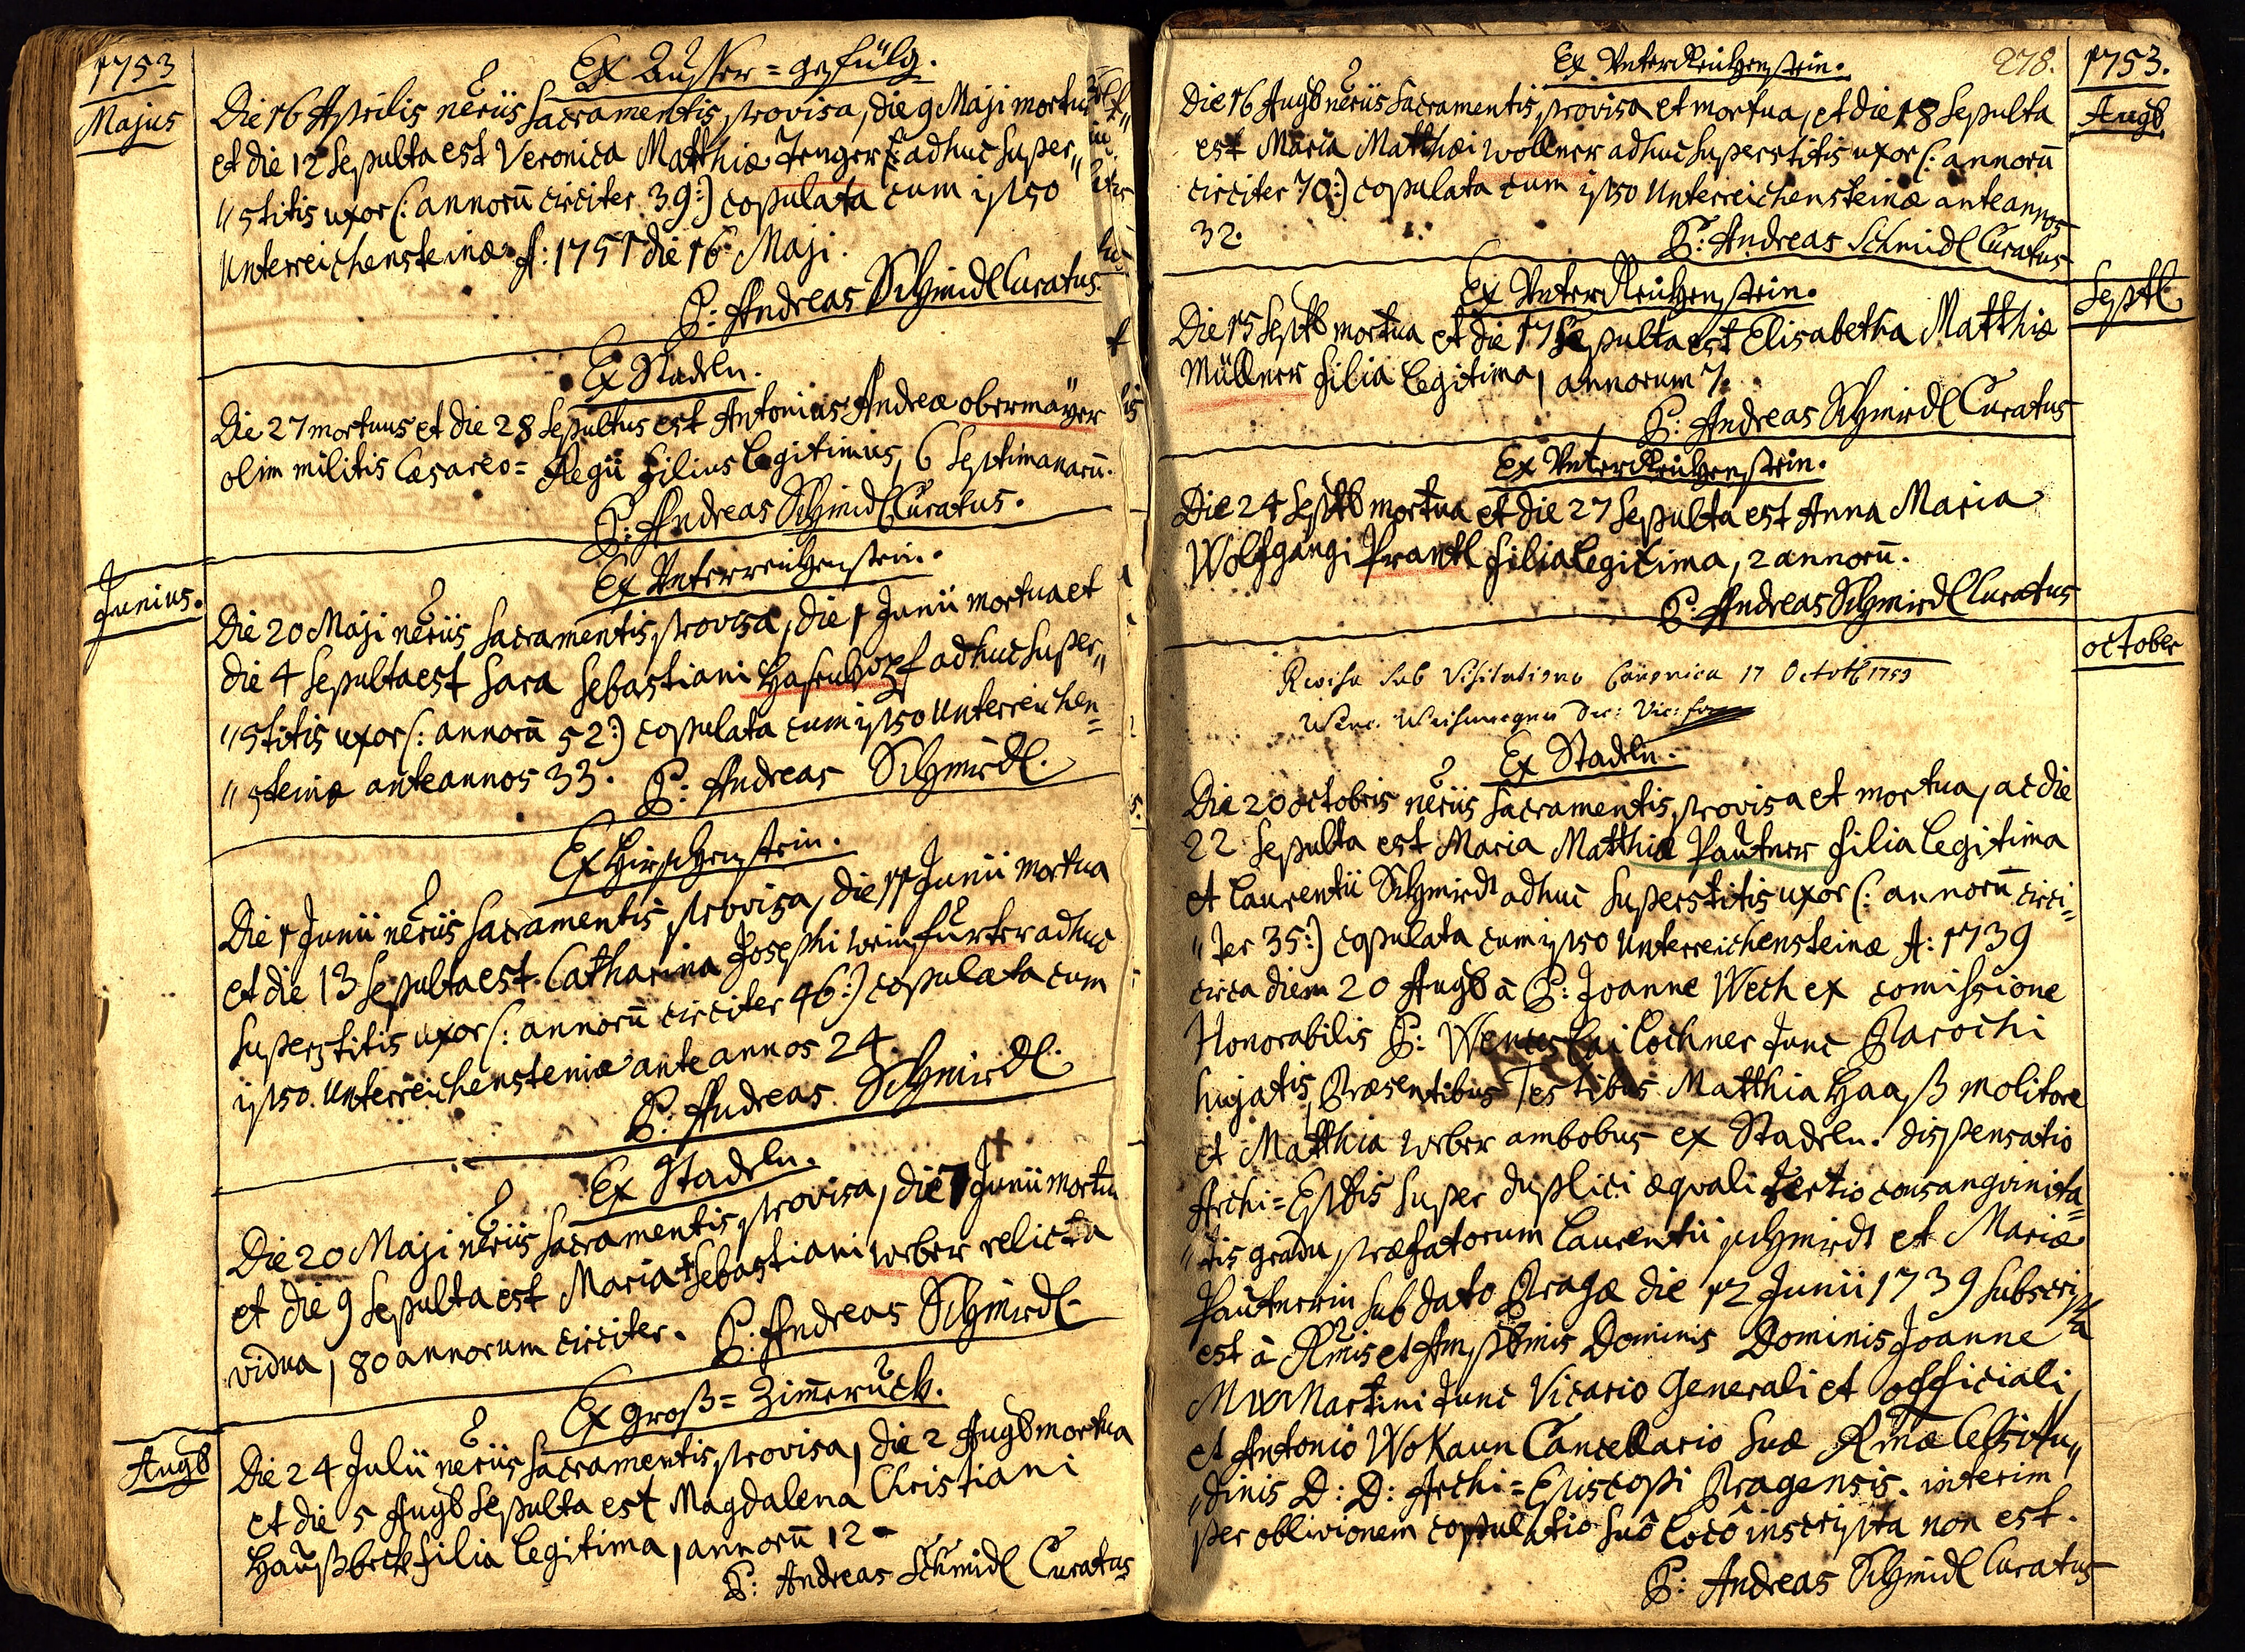 1753
Majus
Ex Ausser=gefülg.
Die 16 Aprilis neriis Sacramentis provisa, die 9 Maji mortua
et die 12 Sepulta est Veronica Matthiæ Jenger adhuc super„
„stitis uxor (: annorũ circiter 39:) copulata cum ipso
Unterreichensteinæ A: 1751 die 16 Maji.
P: Andreas Schmidl Curatus.
Ex Stadeln.
Die 27 mortuus et die 28 Sepultus est Antonius Andreæ obermaÿer
olim militis Cæsareo=Regii filius legitimus, 6 Septimanarũ.
P: Andreas Schmidl Curatus.
Junius.
Ex Unterreichenstein.
Die 20 Maji neriis Sacramentis provisa, die 1 Junii mortua et
die 4 Sepulta est Sara Sebastiani adhuc super„
„stitis uxor (: annorũ 52:) copulata cum ipso Unterreichen=
„steinæ ante annos 33. P: Andreas Schmidl.
Ex Hirschenstein.
Die 1 Junii neriis Sacramentis provisa, die 11 Junii mortua
et die 13 Sepulta est Catharina Josephi Weinfurter adhuc
superstitis uxor (: annorũ circiter 46:) copulata cum
ipso Unterreichensteinæ ante annos 24.
P: Andreas Schmidl.
Ex Stadeln.
Die 20 Maji neriis Sacramentis provisa, die 7 Junii mortua
et die 9 Sepulta est Maria † Sebastiani Weber relicta
vidua, 80 annorum circiter. P: Andreas Schmidl.
Augb
Ex Groß=Zimeruck.
Die 24 Julii neriis Sacramentis provisa, die 2 Augb mortua
et die 5 Augb Sepulta est Magdalena Christiani
Haußbeck filia legitima, annorũ 12.
P: Andreas Schmidl Curatus
278.
1753.
Augb
Ex UnterReichenstein.
Die 16 Augb neriis Sacramentis provisa et mortua, et die 18 Sepulta
est Maria Matthæi Wollner adhuc superstitis uxor (: annorũ
circiter 70:) copulata cum ipso Unterreichensteinæ ante annos
32.
P: Andreas Schmidl Curatus
Septb
Ex UnterReichenstein.
Die 15 Septb mortua et die 17 Sepulta est Elisabetha Matthiæ
Müllner filia legitima, annorum 7.
P: Andreas Schmidl Curatus
Ex UnterReichenstein.
Die 24 Septb mortua et die 27 Sepulta est Anna Maria
Wolfgangi Prantl filia legitima, 2 annorũ.
P: Andreas Schmidl Curatus
october
Revisa sub Visitatione Canonica 17 Octob 1753
Ex Stadeln.
Die 20 octobris neriis Sacramentis provisa et mortua, ac die
22 Sepulta est Maria Matthiæ Pautner filia legitima
et Laurentii Schmidt adhuc superstitis uxor (: annorũ circi=
„ter 35:) copulata cum ipso Unterreichensteinæ A: 1739
circa diem 20 Augb â P: Joanne Wech ex comissione
Honorabilis P: Wenceslai Lochner tunc Parochi
hujatis, Præsentibus Testibus Matthia Haaß molitore
et Matthia Weber ambobus ex Stadeln. dispensatio
Archi=Eppis super duplici æquali tertio consangvinita=
„tis gradu præfatorum Laurentii Schmidt et Mariæ
Pautnerin sub dato Pragæ die 12 Junii 1739 subscripta
est â Rmis et Amplmis Dominis Dominis Joanne
Martini tunc Vicario Generali et officiali,
et Antonio Wokaun Cancellario Suæ Rmæ Celsitu„
„dinis D: D: Archi=Episcopi Pragensis. interim
per oblivionem copulatio suô locô inscripta non est.
P: Andreas Schmidl Curatus